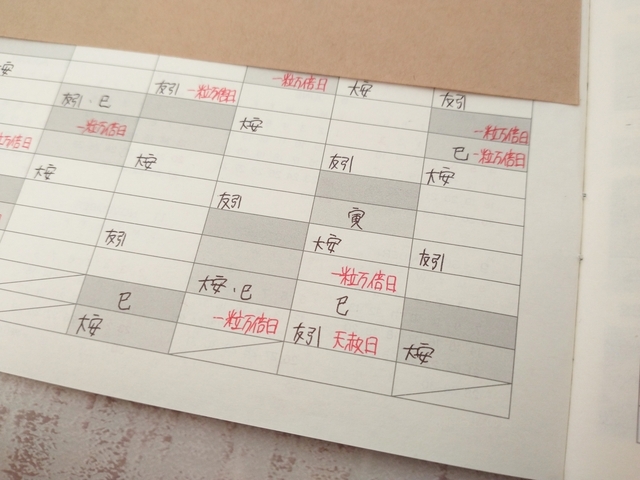 大安
一粒万倍日
大安
友引 一粒万倍日
友引
友引・巳
大安
一粒万倍日
一粒万倍日
巳 一粒万倍日
大安
友引
大安
大安
友引
寅
友引
大安
友引
一粒万倍日
大安・巳
巳
巳
一粒万倍日
友引 天赦日
大安
大安